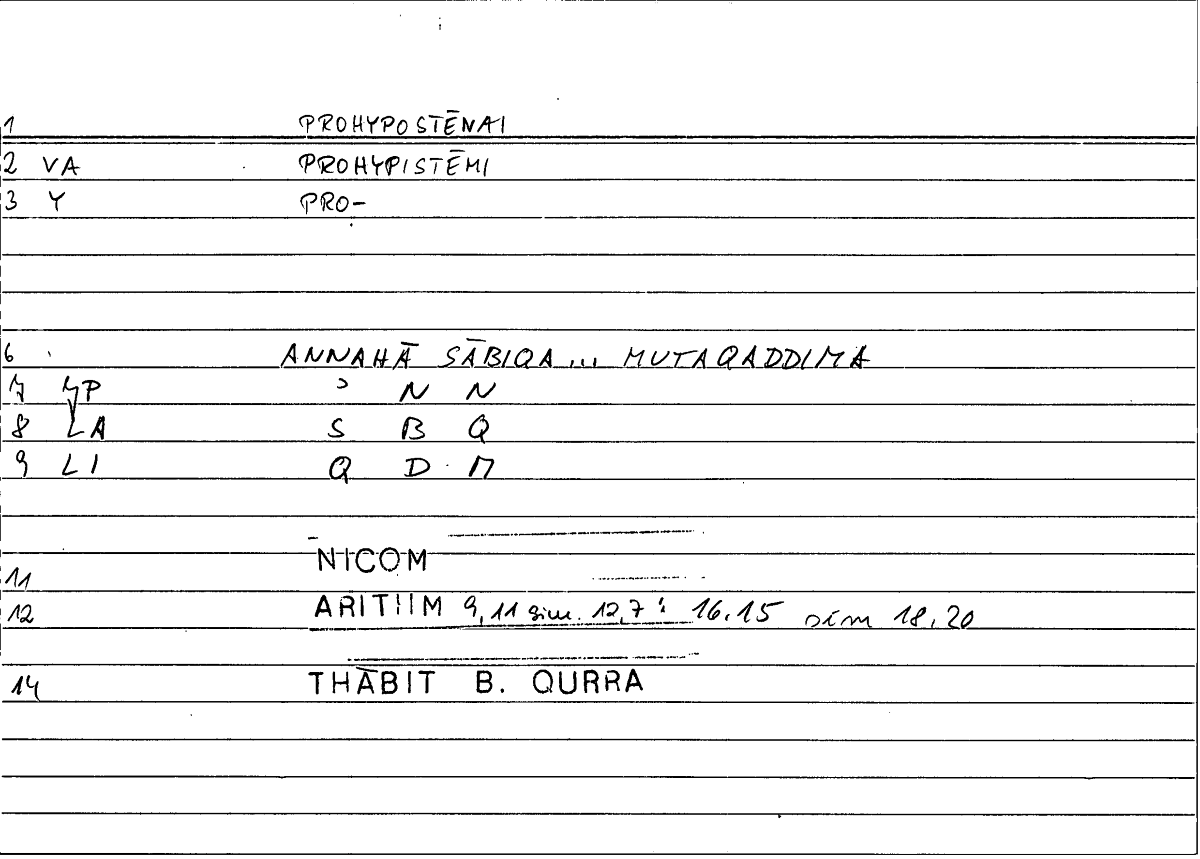 1 PROHYPOSTĒNAI
2 VA PROHYPISTĒMI
3 Y PRO-
6 ANNAHĀ SĀBIQA... MUTAQADDIMA
7 YP ʾ N N
8 LA S B Q
9 LI Q D M
NICOM
11
12 ARITHM 9,11 sim. 12,7 : 16.15 sim 18,20
14 THĀBIT B. QURRA